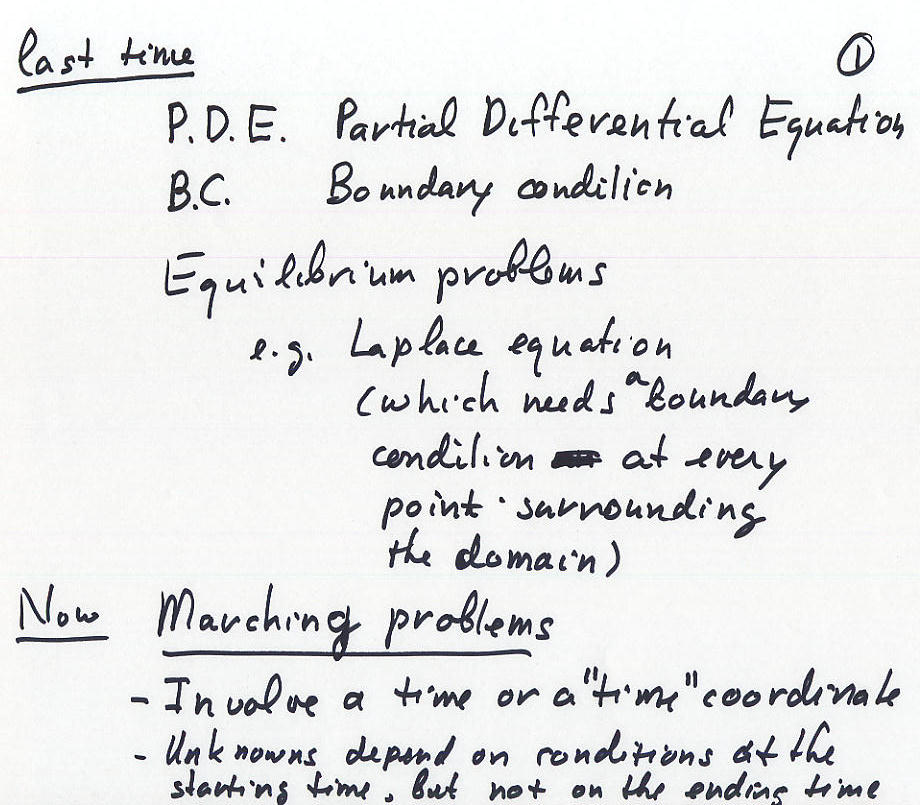 last time ①
P.D.E. Partial Differential Equation
B.C. Boundary condition
Equilibrium problems
e.g. Laplace equation
(which needs a boundary
condition at every
point surrounding
the domain)
Now Marching problems
- Involve a time or a "time" coordinate
- Unknowns depend on conditions at the
starting time, but not on the ending time